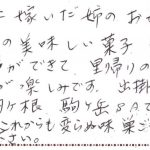 に嫁いだ姉のお
の美味しい菓子
ができて、里帰りの
が楽しみです。出掛
ヶ根 駒ヶ岳SAで
これからも変らぬ味 巣ご
さい。